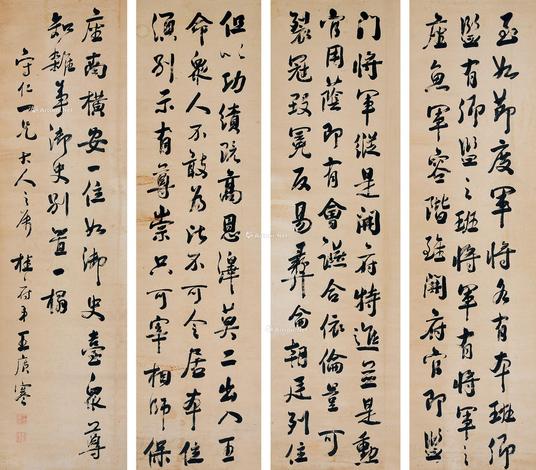 至如節度軍將各有本班卿
監有卿監之班將軍有將軍之
座魚軍容階雖開府官即監
门將軍縱是開府特進並是勳
官用蔭即有會讌合依倫豈可
裂冠毀冕反易彝倫朝廷列位
但以功績既高恩澤莫二出入王
命眾人不敢為比不可令居本位
須別示有尊崇只可宰相師保
座南橫安一位如御史臺眾尊
知雜事御史別置一榻
守仁一兄大人之屬 桂府弟王廣寒